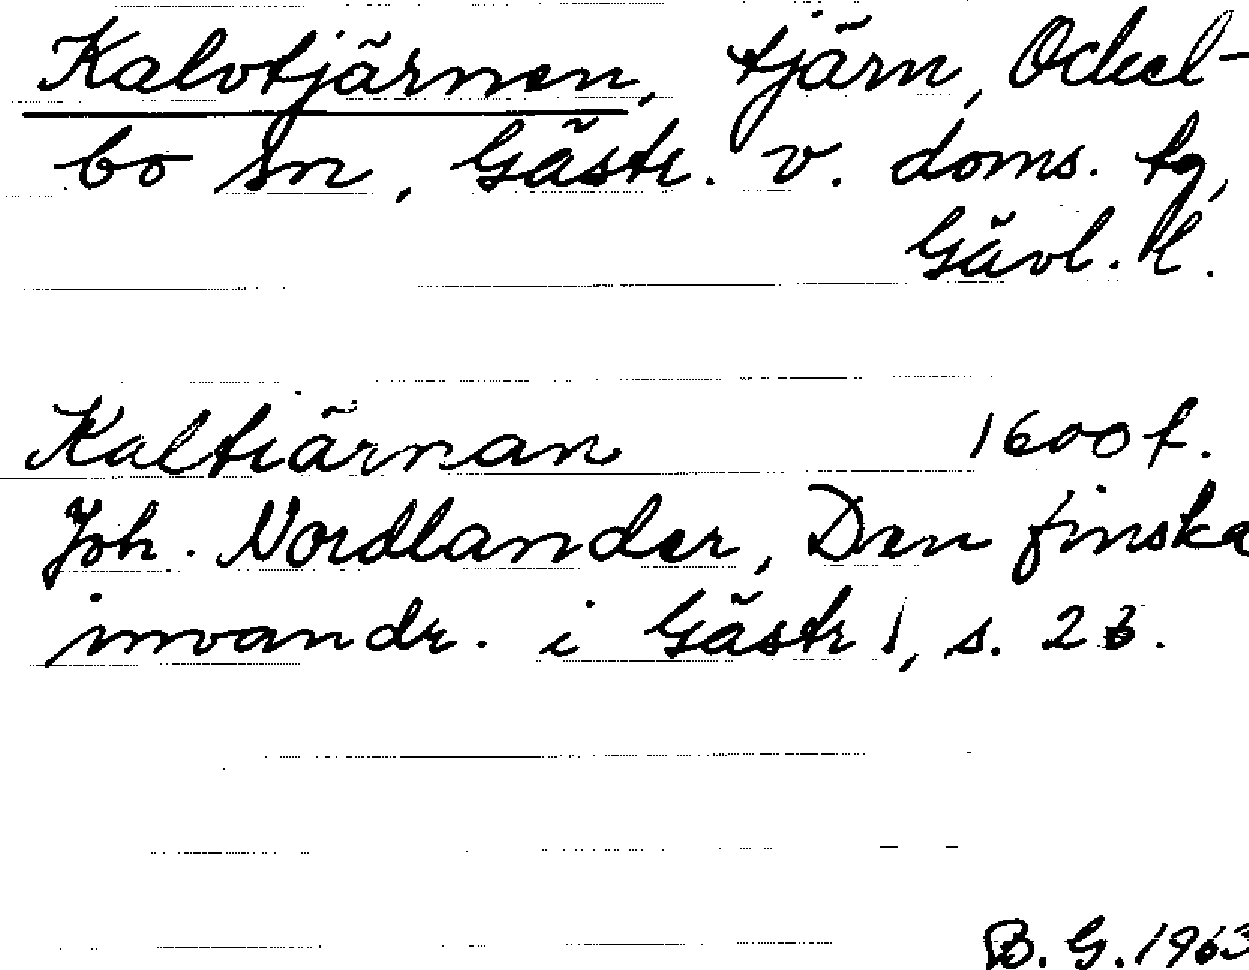 Kalvtjärnen, tjärn, Ockel-
bo sn, Gästr. v. doms. tg,
Gävl. l.
Kaltiärnan 1600 t.
Joh. Nordlander, Den finska
invandr. i Gästr 1, s. 23.
B. G. 1963